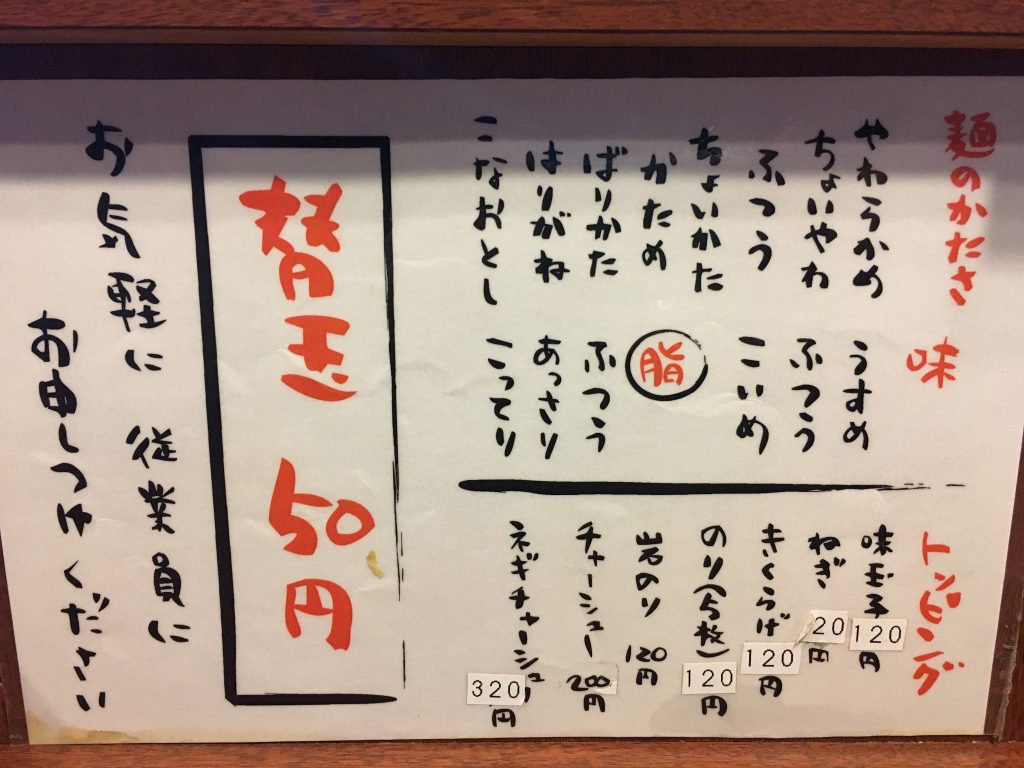 麺のかたさ
やわらかめ
ちょいやわ
ふつう
ちょいかた
かため
ばりかた
はりがね
こなおとし
味
うすめ
ふつう
こいめ
脂
ふつう
あっさり
こってり
トッピング
味玉子 120円
ねぎ 円
きくらげ 120円
のり(5枚) 120円
岩のり 120円
チャーシュー 200円
ネギチャーシュー 320円
替玉 50円
お気軽に 従業員に
お申しつけください